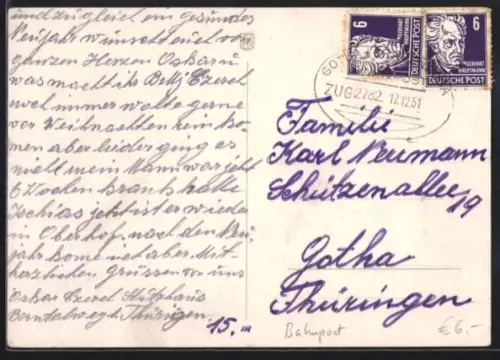 und zugleich ein gesundes
Neujahr wünscht euch von
ganzen Herzen Oskar u
was macht ihr
noch immer wolte gerne
vor Weihnachten kom
men aber leider ging es
nicht mein Mann war jetzt
6 Wochen krank hatte
Ischias jetzt ist er wieder
in Oberhof. nach den Neu
jahr komme
herzlichen grüssen von uns
Oskar
Thüringen.
15.
6
GERHART HAUPTMANN
DEUTSCHE POST
6
GERHART HAUPTMANN
DEUTSCHE POST
ZUG 2782 17.12.51
Familie
Karl Neumann
Schützenallee 19
Gotha
Thüringen
Bahnpost
€ 6,-